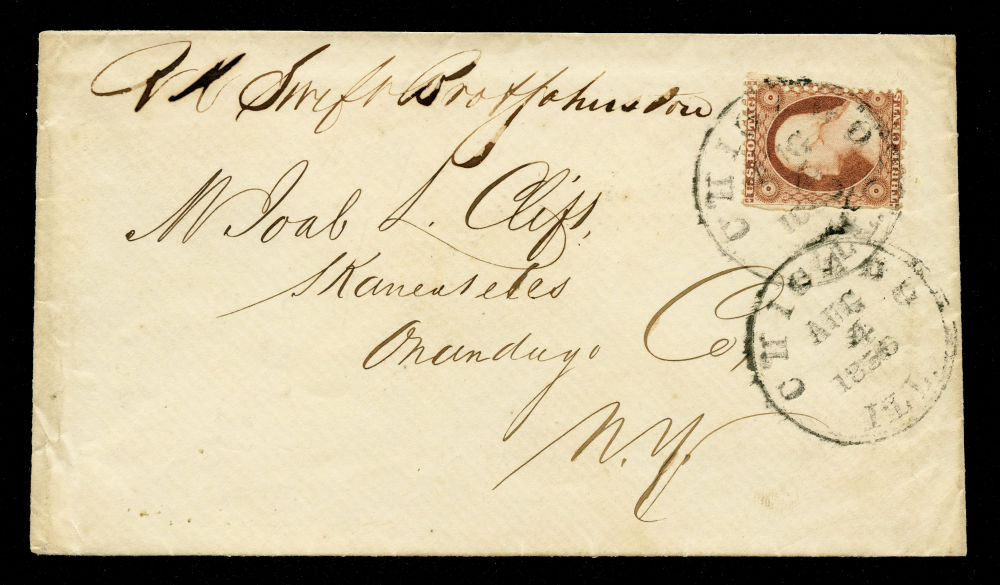 Swift Bro & Johnston
U.S. POSTAGE
THREE CENTS
CHICAGO
ILL
Mr Joab L. Clift,
Skaneateles
Onandago Co,
N.Y.
CHICAGO
AUG
4
1856
ILL.